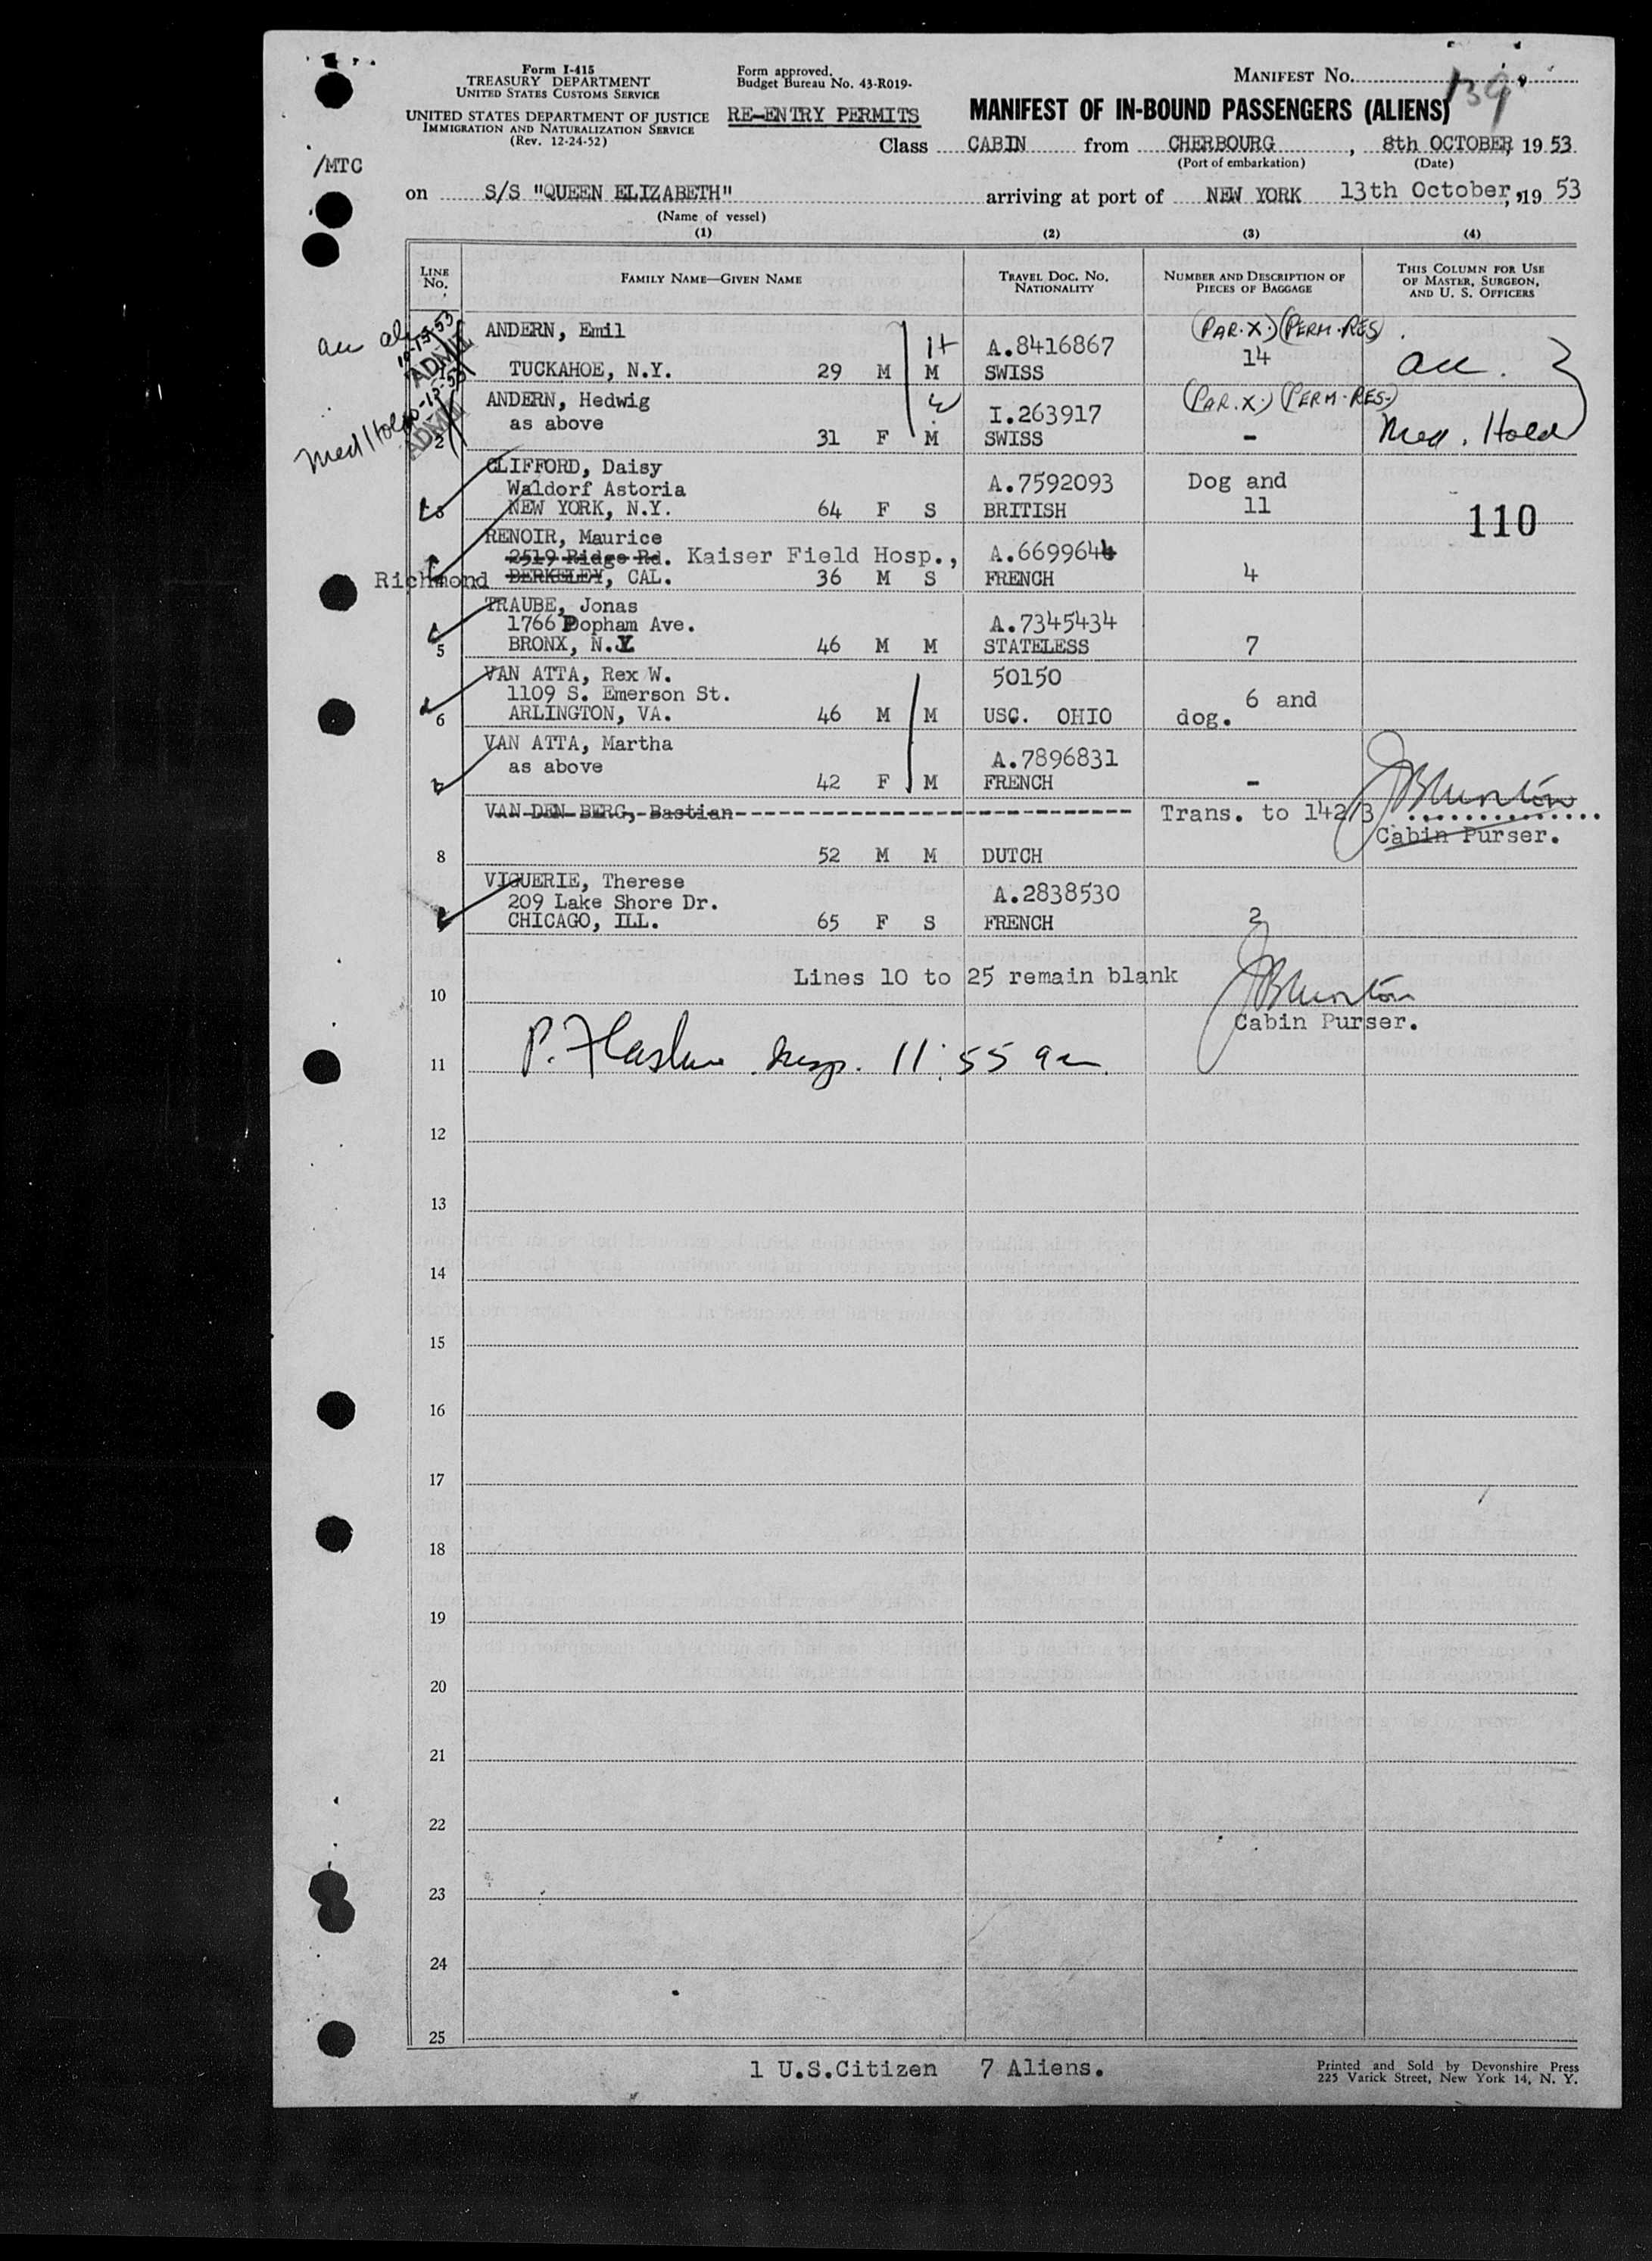 Form I-415
TREASURY DEPARTMENT
UNITED STATES CUSTOMS SERVICE
UNITED STATES DEPARTMENT OF JUSTICE
IMMIGRATION AND NATURALIZATION SERVICE
(Rev. 12-24-52)
Form approved.
Budget Bureau No. 43-R019-
RE-ENTRY PERMITS
MANIFEST No. 139
MANIFEST OF IN-BOUND PASSENGERS (ALIENS)
Class CABIN from CHERBOURG, 8th OCTOBER, 19 53
(Port of embarkation) (Date)
/MTC
on S/S "QUEEN ELIZABETH" arriving at port of NEW YORK 13th October, 19 53
(Name of vessel)
(1) (2) (3) (4)
LINE No. FAMILY NAME—GIVEN NAME TRAVEL DOC. No. NATIONALITY NUMBER AND DESCRIPTION OF PIECES OF BAGGAGE THIS COLUMN FOR USE OF MASTER, SURGEON, AND U. S. OFFICERS
10-13-53
ADMIT
ANDERN, Emil H A.8416867 (PAR.X.) (PERM.RES)
1 TUCKAHOE, N.Y. 29 M M SWISS 14 acc.
ADMIT
ANDERN, Hedwig W I.263917 (PAR.X.) (PERM.RES.)
as above
Med Hold 2 31 F M SWISS - Med. Hold
CLIFFORD, Daisy A.7592093 Dog and
Waldorf Astoria
3 NEW YORK, N.Y. 64 F S BRITISH 11
110
RENOIR, Maurice
2519 Ridge Rd. Kaiser Field Hosp., A.6699644
Richmond BERKELEY, CAL. 36 M S FRENCH 4
TRAUBE, Jonas
1766 Popham Ave. A.7345434
5 BRONX, N.Y. 46 M M STATELESS 7
VAN ATTA, Rex W. 50150
1109 S. Emerson St. 6 and
6 ARLINGTON, VA. 46 M M USC. OHIO dog.
VAN ATTA, Martha A.7896831
as above
42 F M FRENCH -
VAN DEN BERG, Bastian Trans. to 142/3
Cabin Purser.
8 52 M M DUTCH
VIGUERIE, Therese
209 Lake Shore Dr. A.2838530
CHICAGO, ILL. 65 F S FRENCH 2
Lines 10 to 25 remain blank
10
Cabin Purser.
11 P. Insp. 11:55 am
12
13
14
15
16
17
18
19
20
21
22
23
24
25
1 U.S.Citizen 7 Aliens.
Printed and Sold by Devonshire Press
225 Varick Street, New York 14, N. Y.